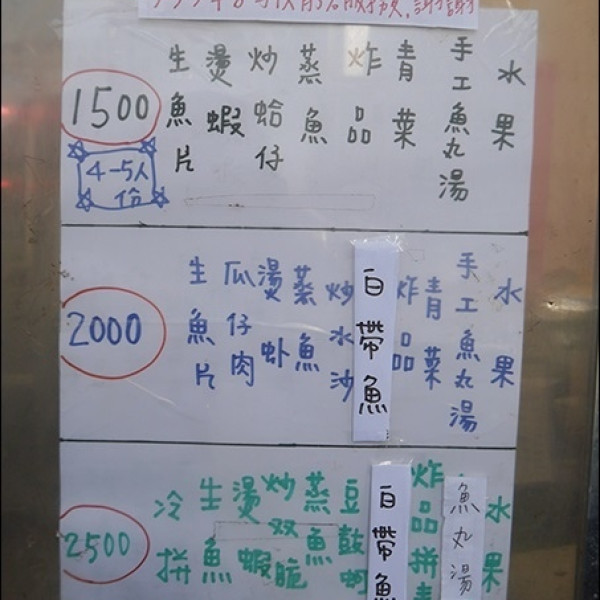 1500
4-5人份
生魚片
燙蝦
炒蛤仔
蒸魚
炸品
青菜
手工魚丸湯
水果
2000
生魚片
瓜仔肉
燙蝦
蒸魚
炒水沙
白帶魚
炸品
青菜
手工魚丸湯
水果
2500
冷拼
生魚
燙蝦
炒双脆
蒸魚
豆鼓蚵
白帶魚
炸品拼
魚丸湯
水果